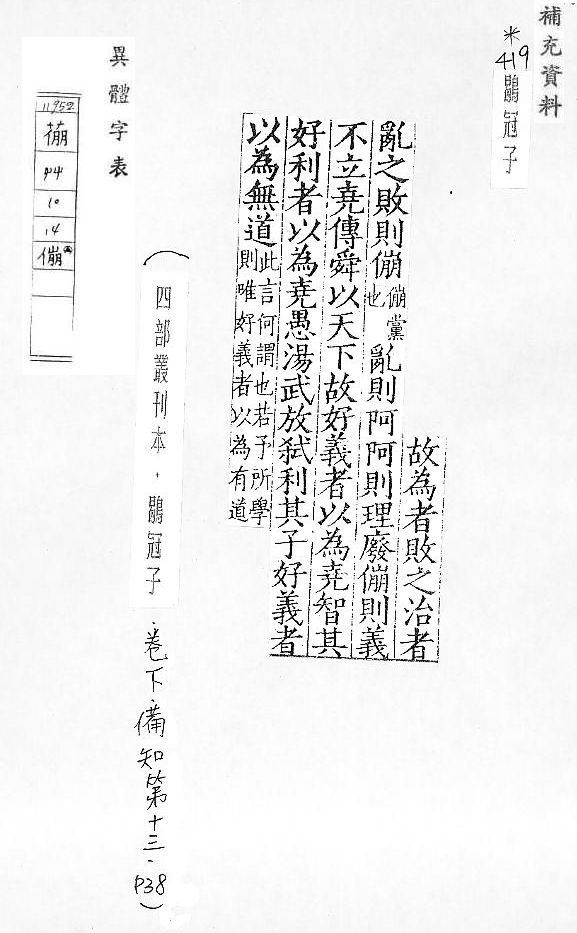 補充資料
*
419
鶡冠子
故為者敗之治者
亂之敗則傰傰黨也亂則阿阿則理廢傰則義
不立堯傳舜以天下故好義者以為堯智其
好利者以為堯愚湯武放弑利其子好義者
以為無道此言何謂也若予所學則唯好義者以為有道
(四部叢刊本.鶡冠子.卷下.備知第十三.P38)
異體字表
11952
94
10
14
傰